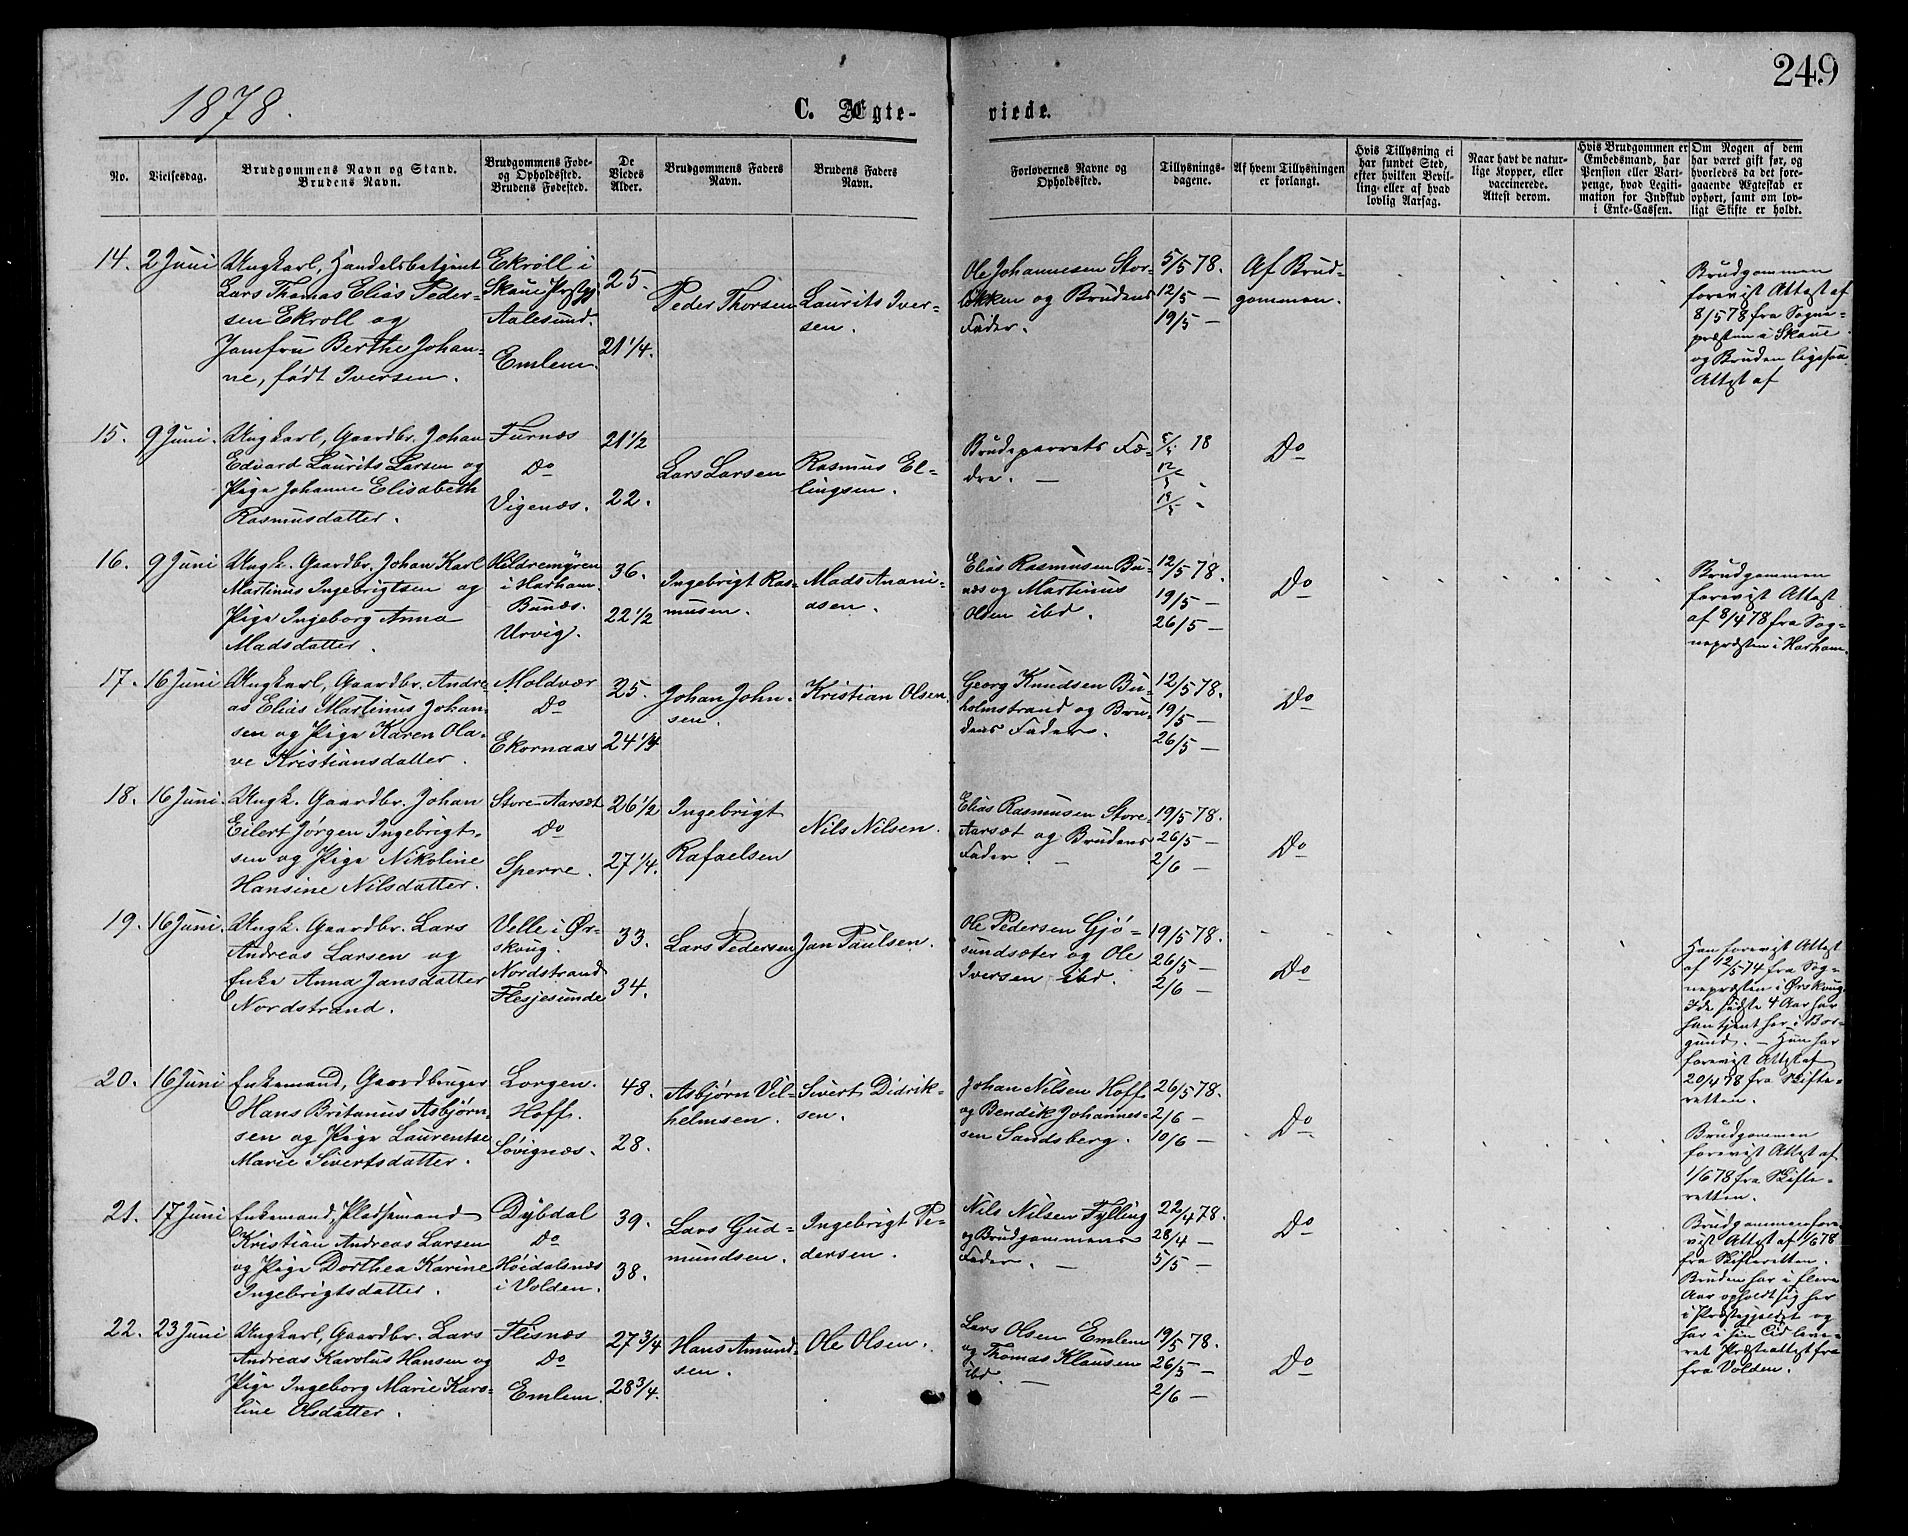 249
1878.
C. Ægte-
viede.
No.
Vielsesdag.
Brudgommens Navn og Stand.
Brudens Navn.
Brudgommens Føde-
og Opholdssted.
Brudens Fødested.
De
Viedes
Alder.
Brudgommens Faders
Navn.
Brudens Faders
Navn.
Forlovernes Navne og
Opholdssted.
Tillysnings-
dagene.
Af hvem Tillysningen
er forlangt.
Hvis Tillysning ei
har fundet Sted,
efter hvilken Bevil-
ling eller af hvad
lovlig Aarsag.
Naar havt de natur-
lige Kopper, eller
vaccinerede.
Attest derom.
Hvis Brudgommen er
Embedsmand, har
Pension eller Vart-
penge, hvad Legiti-
mation for Indskud
i Enke-Cassen.
Om Nogen af dem
har været gift før, og
hvorledes da det fore-
gaaende Ægteskab er
ophørt, samt om lov-
ligt Skifte er holdt.
14.
2 Juni
Ungkarl, Handelsbetjent
Lars Thomas Elias Peder-
sen Ekroll og
Jomfru Berthe Johan-
ne, født Iversen.
Ekröll i
Skaue Prstgj.
Aalesund.
Emlem.
25.
21 1/4.
Peder Thorsen
Laurits Iver-
sen.
Ole Johannesen Stor-
løkken og Brudens
Fader.
5/5 78.
12/5 —
19/5 —
Af Brud-
gommen.
Brudgommen
forevist Attest af
8/5 78 fra Sogne-
præsten i Skaue
og Bruden ligesaa
Attest af
15.
9 Juni.
Ungkarl, Gaardbr. Johan
Edvard Laurits Larsen og
Pige Johanne Elisabeth
Rasmusdatter.
Furnæs
Do
Vigenæs.
21 1/2
22.
Lars Larsen
Rasmus El-
lingsen.
Brudeparrets Fæ-
dre. —
5/5 78
12/5
19/5
Do
16.
9 Juni
Ungk. Gaardbr. Johan Karl
Martinus Ingebrigtsen og
Pige Ingeborg Anna
Madsdatter.
Hildremyren
i Harham
Bunæs.
Urvig.
36.
22 1/2
Ingebrigt Ras-
musen.
Mads Anani-
asen.
Elias Rasmusen Bu-
næs og Martinus
Olsen ibd.
12/5 78.
19/5 —
26/5 —
Do
Brudgommen
forevist Attest
af 8/4 78 fra Sog-
nepræsten i Harham.
17.
16 Juni
Ungkarl, Gaardbr. Andre-
as Elias Martinus Johan-
sen og Pige Karen Ola-
ve Kristiansdatter.
Moldvær
Do
Ekornaas
25.
24 1/4
Johan John-
sen.
Kristian Olsen
Georg Knudsen Bu-
holmstrand og Bru-
dens Fader.
12/5 78.
19/5 —
26/5 —
Do
18.
16 Juni.
Ungk. Gaardbr. Johan
Eilert Jørgen Ingebrigt-
sen og Pige Nikoline
Hansine Nilsdatter.
Store-Aarsæt
Do
Sperre.
26 1/2
27 1/4.
Ingebrigt
Rafaelsen
Nils Nilsen.
Elias Rasmusen Store-
Aarsæt og Brudens
Fader. —
19/5 78.
26/5 —
2/6 —
Do
19.
16 Juni.
Ungk. Gaardbr. Lars
Andreas Larsen og
Enke Anna Jansdatter
Nordstrand.
Velle i Ør-
skoug.
Nordstrand
Flesjesunde
33.
34.
Lars Pedersen
Jan Paulsen.
Ole Pedersen Gjø-
sundsæter og Ole
Iversen ibd.
19/5 78.
26/5 —
2/6 —
Do
Han forevist Attest
af 12/5 74 fra Sog-
nepræsten i Ørskoug
I de sidste 4 Aar har
han tjent her i Bor-
gund. — Hun har
forevist Attest af
20/4 78 fra Skifte-
retten.
20.
16 Juni
Enkemand, Gaardbruger
Hans Britanus Asbjørn-
sen og Pige Laurentse
Marie Sivertsdatter.
Lorgen.
Hoff.
Søvignæs.
48.
28.
Asbjørn Vil-
helmsen.
Sivert Didrik-
sen.
Johan Nilsen Hoff
og Bendik Johannes-
sen Sandsberg.
26/5 78.
2/6 —
10/6 —
Do
Brudgommen
forevist Attest af
1/6 78 fra Skifte-
retten.
21.
17 Juni
Enkemand, Pladsemand
Kristian Andreas Larsen
og Pige Dorthea Karine
Ingebrigtsdatter.
Dybdal
Do
Høidalsnæs
i Volden.
39.
38.
Lars Gud-
mundsen.
Ingebrigt Pe-
dersen.
Nils Nilsen Fylling
og Brudgommens
Fader. —
22/4 78.
28/4 —
5/5 —
Do
Brudgommen fore-
vist Attest af 1/6 78
fra Skifteretten.
Bruden har i flere
Aar opholdt sig her
i Præstegjeldet og
har i sin Tid leve-
ret Præsteattest fra
fra Volden.
22.
23 Juni
Ungkarl, Gaardbr. Lars
Andreas Karolus Hansen og
Pige Ingeborg Marie Karo-
line Olsdatter.
Flisnæs
Do
Emlem
27 3/4
28 3/4.
Hans Amund-
sen.
Ole Olsen.
Lars Olsen Emlem
og Thomas Klausen
ibd. —
19/5 78.
26/5 —
2/6 —
Do